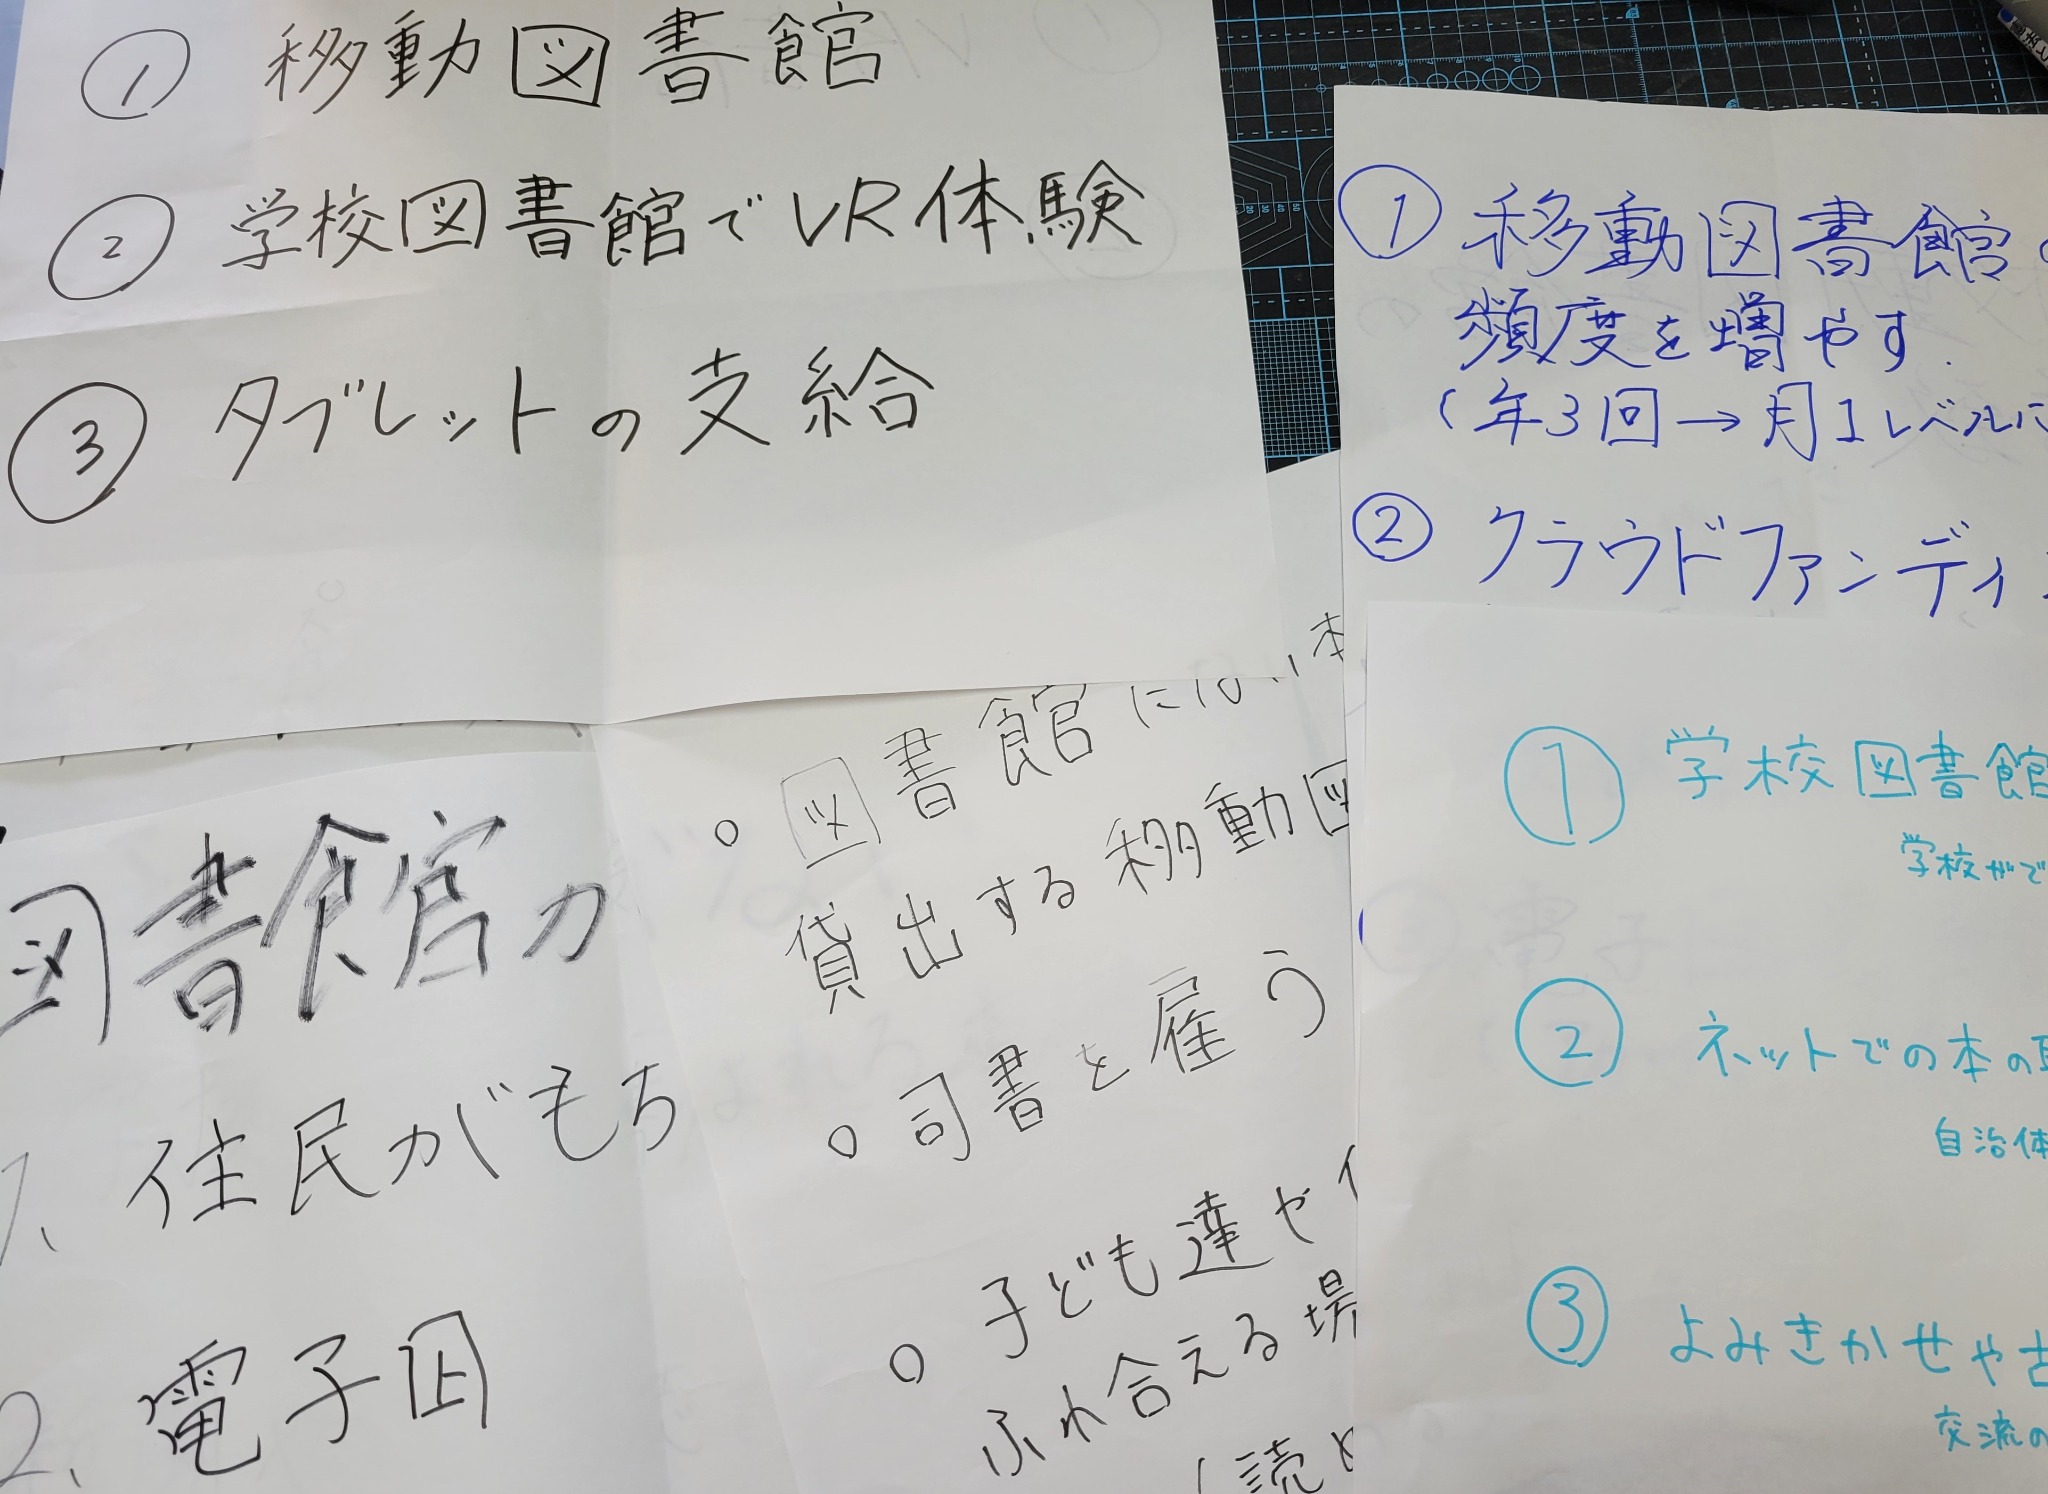 ① 移動図書館
② 学校図書館でVR体験
③ タブレットの支給
① 移動図書館
頻度を増やす.
(年3回→月1レベルに
② クラウドファンディ
① 学校図書館
学校がで
② ネットでの本の
自治体
③ よみきかせや古
交流の
○ 図書館にはない本
貸出する移動図
○ 司書を雇う
○ 子ども達や
ふれ合える場
(読め
図書館カ
1. 住民がもち
2. 電子